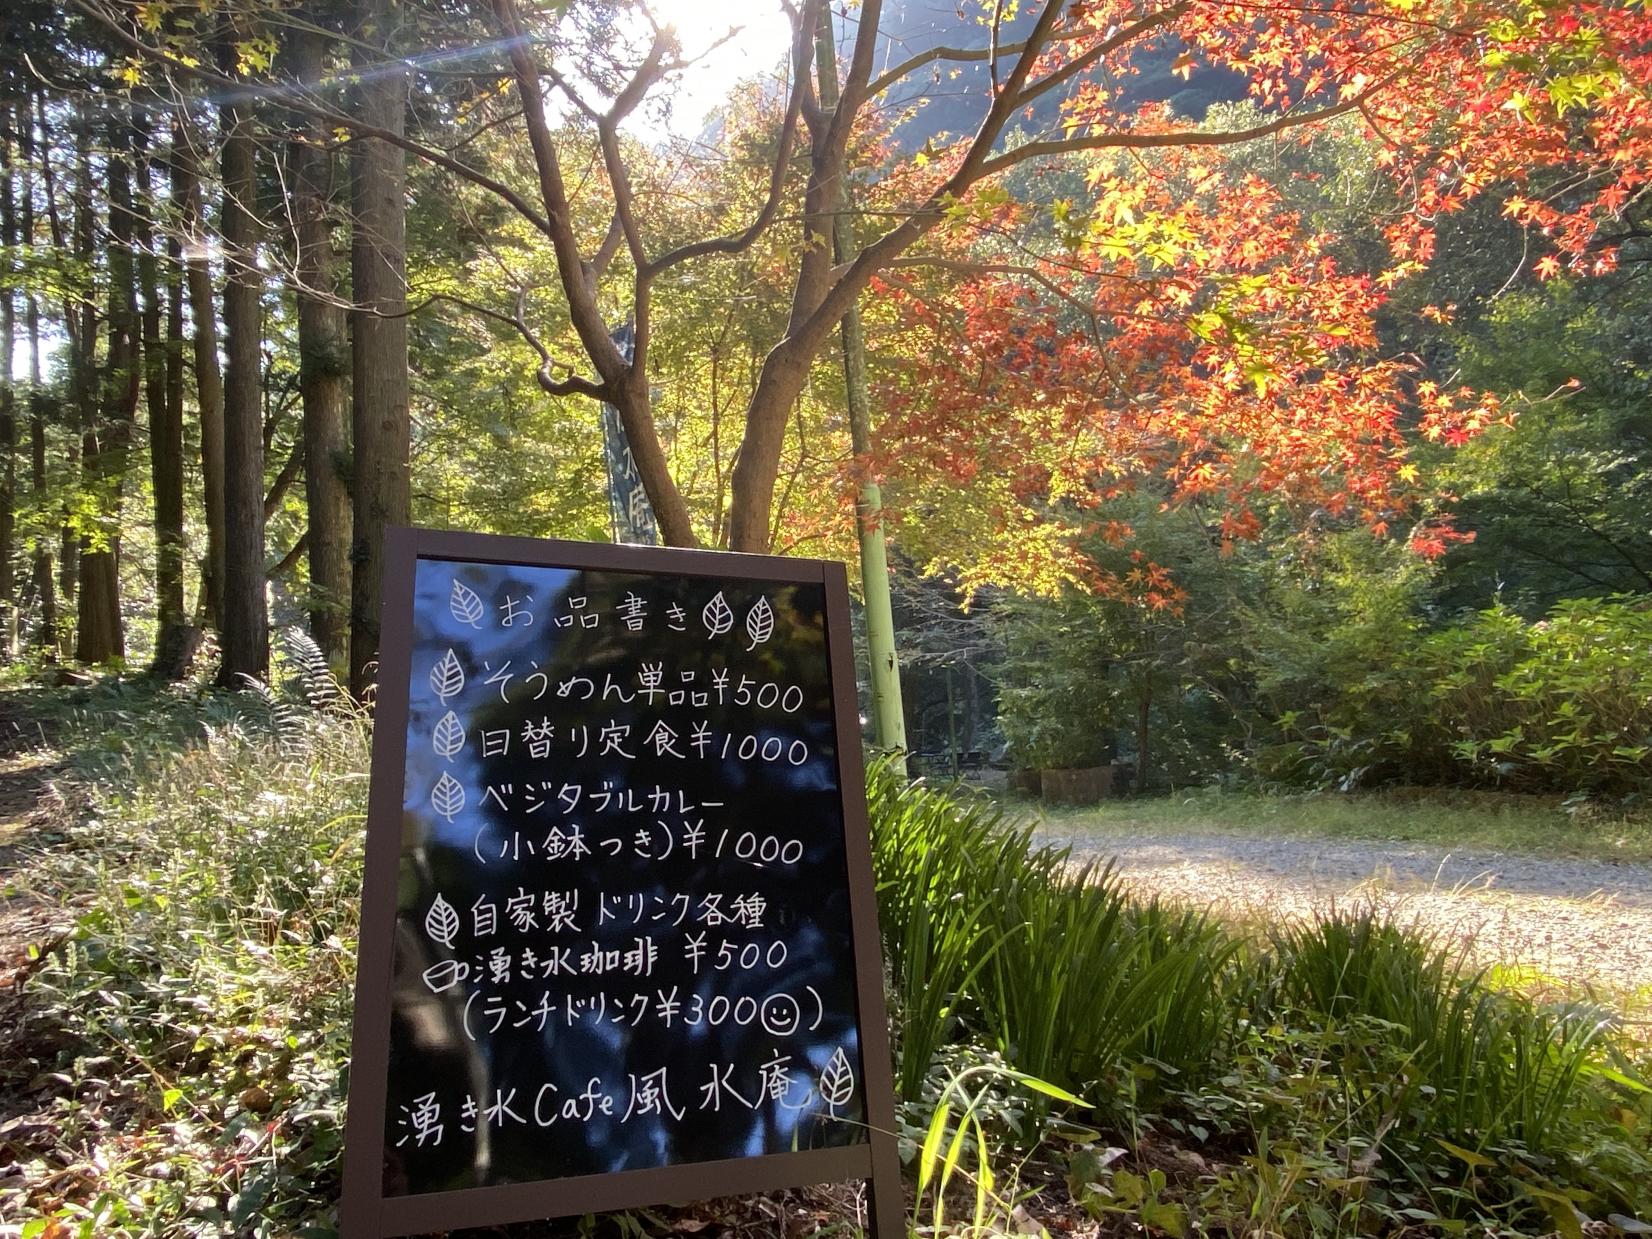 お品書き
そうめん単品¥500
日替り定食¥1000
ベジタブルカレー
(小鉢つき)¥1000
自家製ドリンク各種
湧き水珈琲 ¥500
(ランチドリンク¥300)
湧き水Cafe風水庵
水庵